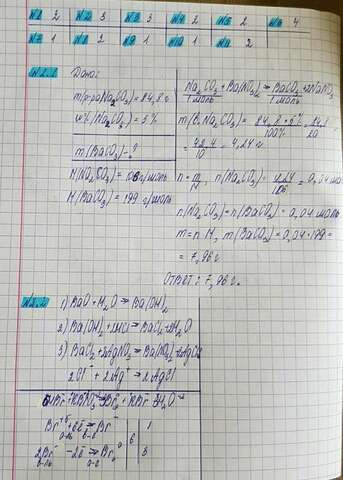 №1 2 №2 3 №3 3 №4 2 №5 2 №6 4
№7 1 №8 2 №9 1 №10 1 №11 2
№2.1 Дано:
m(р-ра Na2CO3) = 84,8 г
w(Na2CO3) = 5%
m(BaCO3) - ?
M(Na2CO3) = 106 г/моль
M(BaCO3) = 199 г/моль
Na2CO3 + Ba(NO3)2 → BaCO3 + 2NaNO3
1 моль 1 моль
m(в. Na2CO3) = 84,8 * 5% / 100% =
= 42,4 / 10 = 4,24 г
n = m / M, n(Na2CO3) = 4,24 / 106 = 0,04 моль
n(Na2CO3) = n(BaCO3) = 0,04 моль
m = n·M, m(BaCO3) = 0,04 * 199 =
= 7,96 г.
Ответ: 7,96 г.
№2.2 1) BaO + H2O → Ba(OH)2
2) Ba(OH)2 + 2HCl → BaCl2 + 2H2O
3) BaCl2 + 2AgNO3 → Ba(NO3)2 + 2AgCl
2Cl⁻ + 2Ag⁺ → 2AgCl
Br⁺⁵ + 6ē → Br⁻ 6 1
2Br⁻ - 2ē → Br2⁰ 3